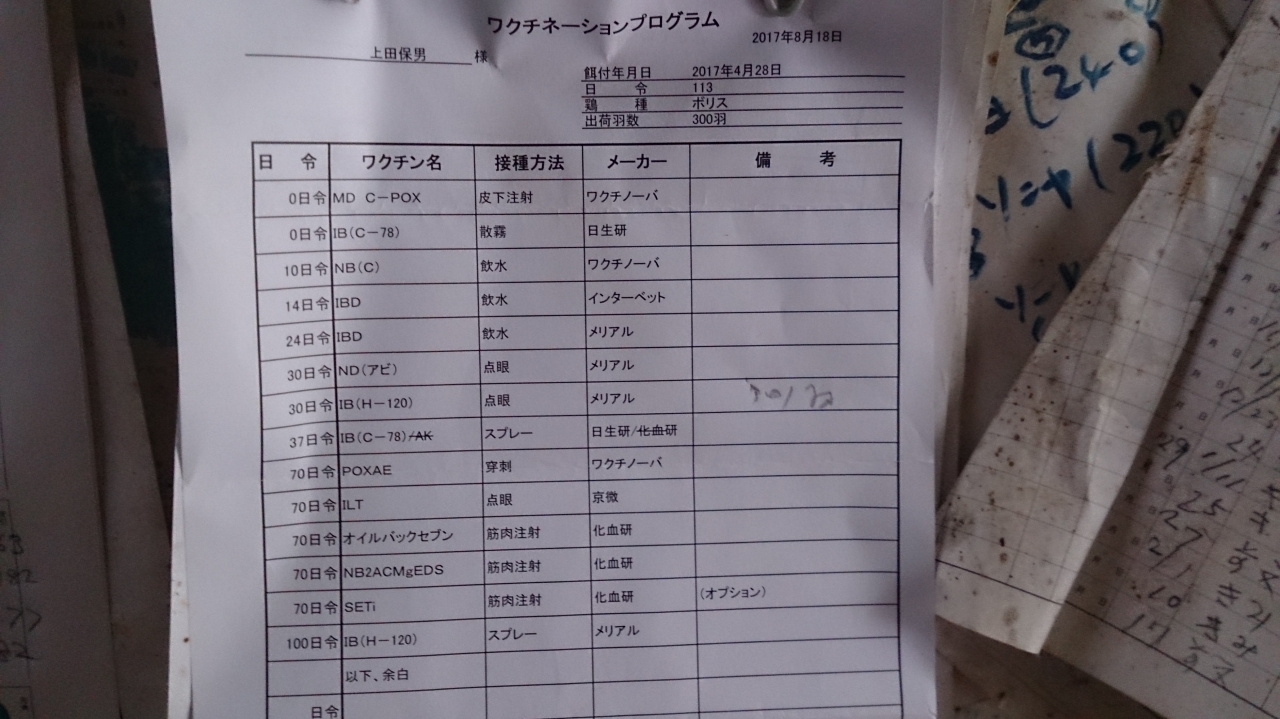 ワクチネーションプログラム
2017年8月18日
上田保男 様
餌付年月日 2017年4月28日
日 令 113
鶏 種 ボリス
出荷羽数 300羽
日 令 ワクチン名 接種方法 メーカー 備 考
0日令 MD C-POX 皮下注射 ワクチノーバ
0日令 IB(C-78) 散霧 日生研
10日令 NB(C) 飲水 ワクチノーバ
14日令 IBD 飲水 インターベット
24日令 IBD 飲水 メリアル
30日令 ND(アビ) 点眼 メリアル
30日令 IB(H-120) 点眼 メリアル
37日令 IB(C-78)/AK スプレー 日生研/化血研
70日令 POXAE 穿刺 ワクチノーバ
70日令 ILT 点眼 京微
70日令 オイルバックセブン 筋肉注射 化血研
70日令 NB2ACMgEDS 筋肉注射 化血研
70日令 SETi 筋肉注射 化血研 (オプション)
100日令 IB(H-120) スプレー メリアル
以下、余白
日令
(240)
(220)
24
29 1/11
25
27
21
10
17